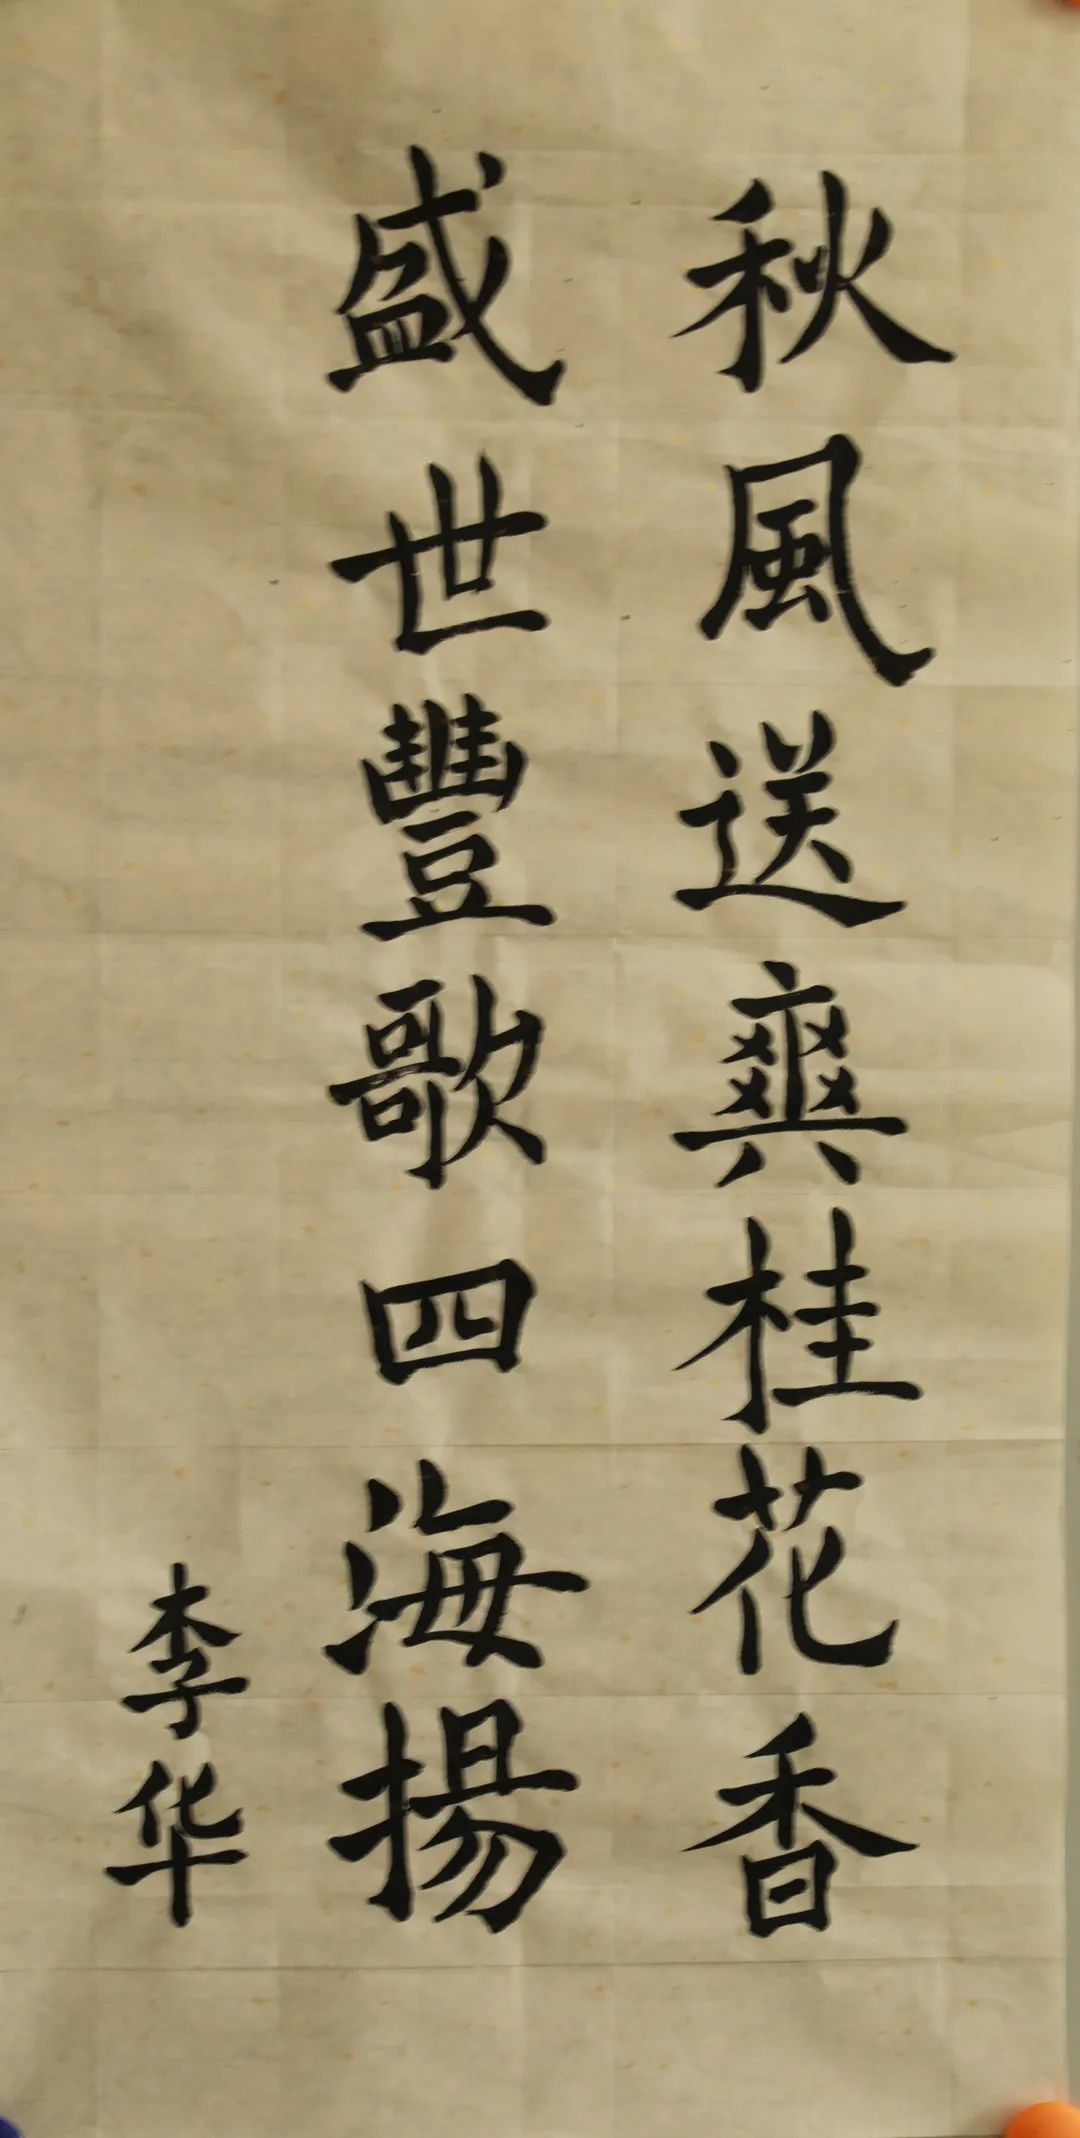 秋風送爽桂花香
盛世豐歌四海揚
李华